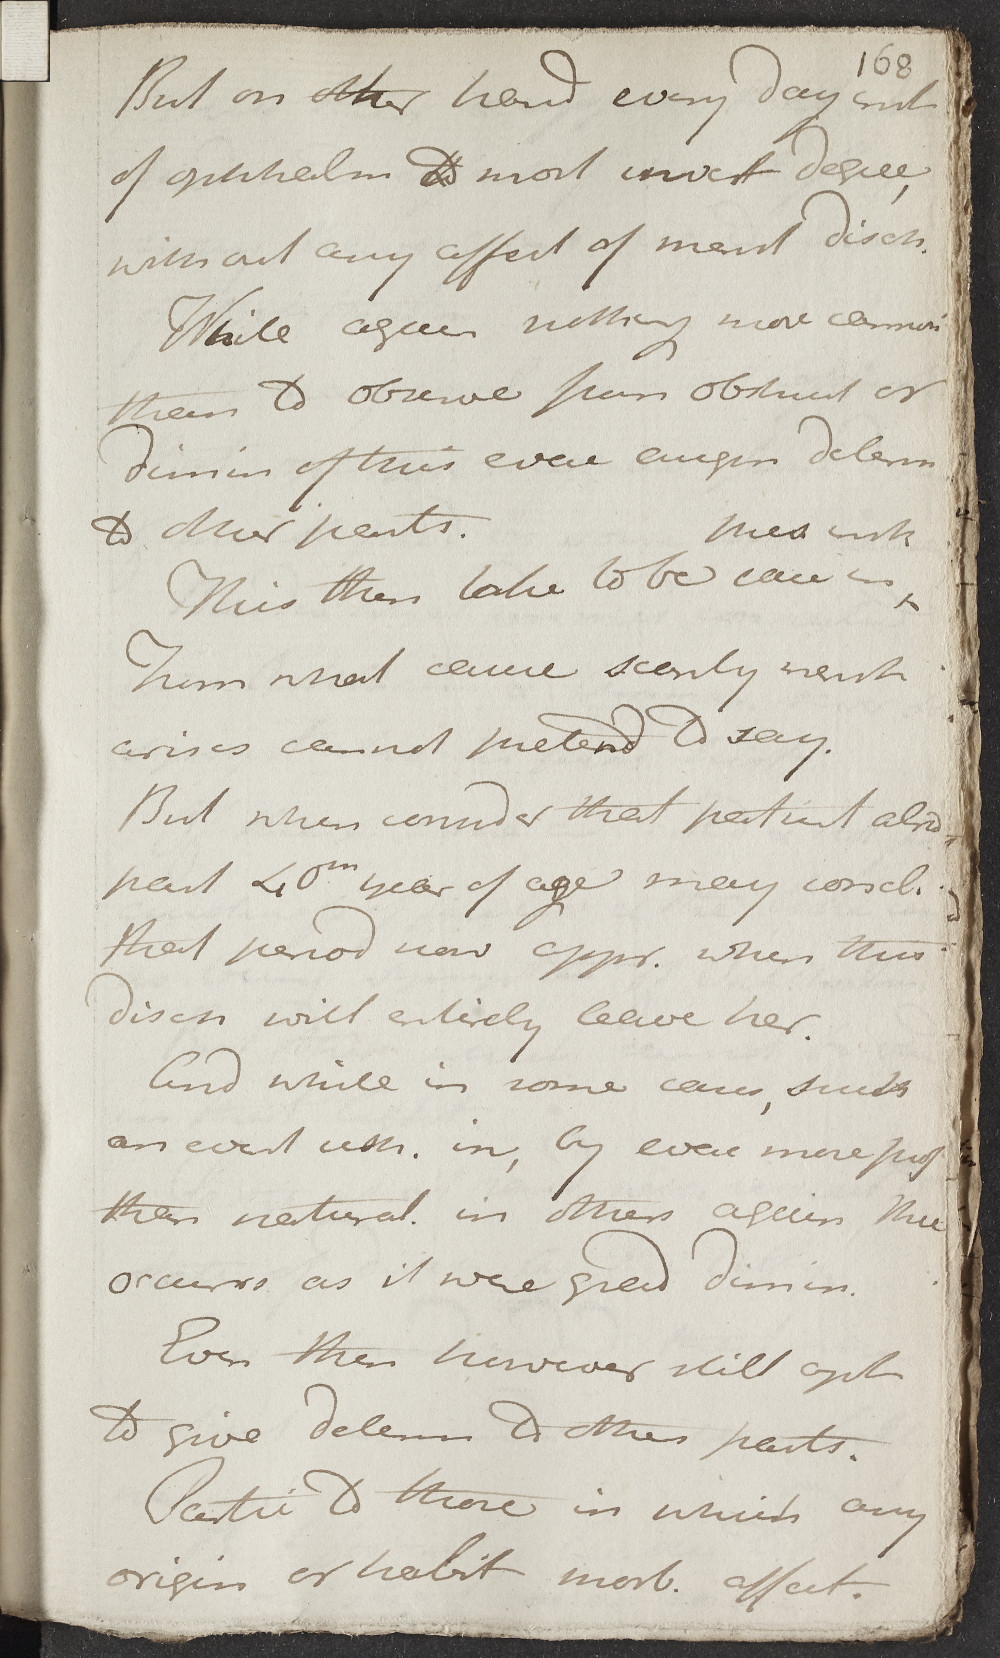 168
But on other hand every day inst
of ophthalm to most invet degree,
without any affect of menst disch.
While again nothing more common
than to observe from obstruct or
dimin of this evac augm determ
to other parts.
pres inst
This then take to be case in
From what cause scanty menst
arises cannot pretend to say.
But when consider that patient alrd
past 40th year of age may concl.
that period now appr. when this
disch will entirely leave her.
And while in some cases, such
an event ush. in, by evac more prof
than natural. in others again this
occurrs as it were grad dimin.
Even then however still apt
to give determ to other parts.
Partic to those in which any
origin or habit morb. affect.